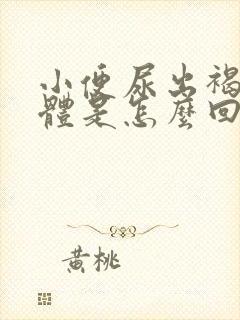 小便尿出褐
體是怎麼回
黃桃